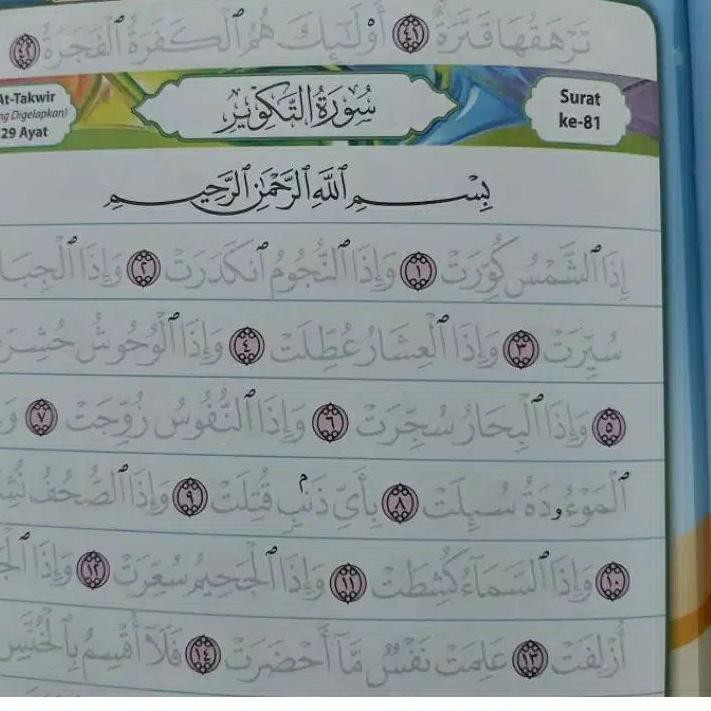 تَرْهَقُهَا قَتَرَةٌ ٤١ أُو۟لَٰٓئِكَ هُمُ ٱلْكَفَرَةُ ٱلْفَجَرَةُ ٤٢
At-Takwir
ng Digelapkan)
29 Ayat
سُورَةُ التَّكْوِيرِ
Surat
ke-81
بِسْمِ ٱللَّهِ ٱلرَّحْمَٰنِ ٱلرَّحِيمِ
إِذَا ٱلشَّمْسُ كُوِّرَتْ ١ وَإِذَا ٱلنُّجُومُ ٱنكَدَرَتْ ٢ وَإِذَا ٱلْجِبَا
سُيِّرَتْ ٣ وَإِذَا ٱلْعِشَارُ عُطِّلَتْ ٤ وَإِذَا ٱلْوُحُوشُ حُشِرَ
٥ وَإِذَا ٱلْبِحَارُ سُجِّرَتْ ٦ وَإِذَا ٱلنُّفُوسُ زُوِّجَتْ ٧ وَ
ٱلْمَوْءُۥدَةُ سُئِلَتْ ٨ بِأَىِّ ذَنۢبٍ قُتِلَتْ ٩ وَإِذَا ٱلصُّحُفُ نُشِ
١٠ وَإِذَا ٱلسَّمَآءُ كُشِطَتْ ١١ وَإِذَا ٱلْجَحِيمُ سُعِّرَتْ ١٢ وَإِذَا ٱلْجَ
أُزْلِفَتْ ١٣ عَلِمَتْ نَفْسٌ مَّآ أَحْضَرَتْ ١٤ فَلَآ أُقْسِمُ بِٱلْخُنَّسِ